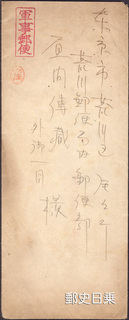 軍事郵便
東京市荒川区尾久町
荒川郵便局内郵便部
直間傳蔵様
外御一同
郵史日乗